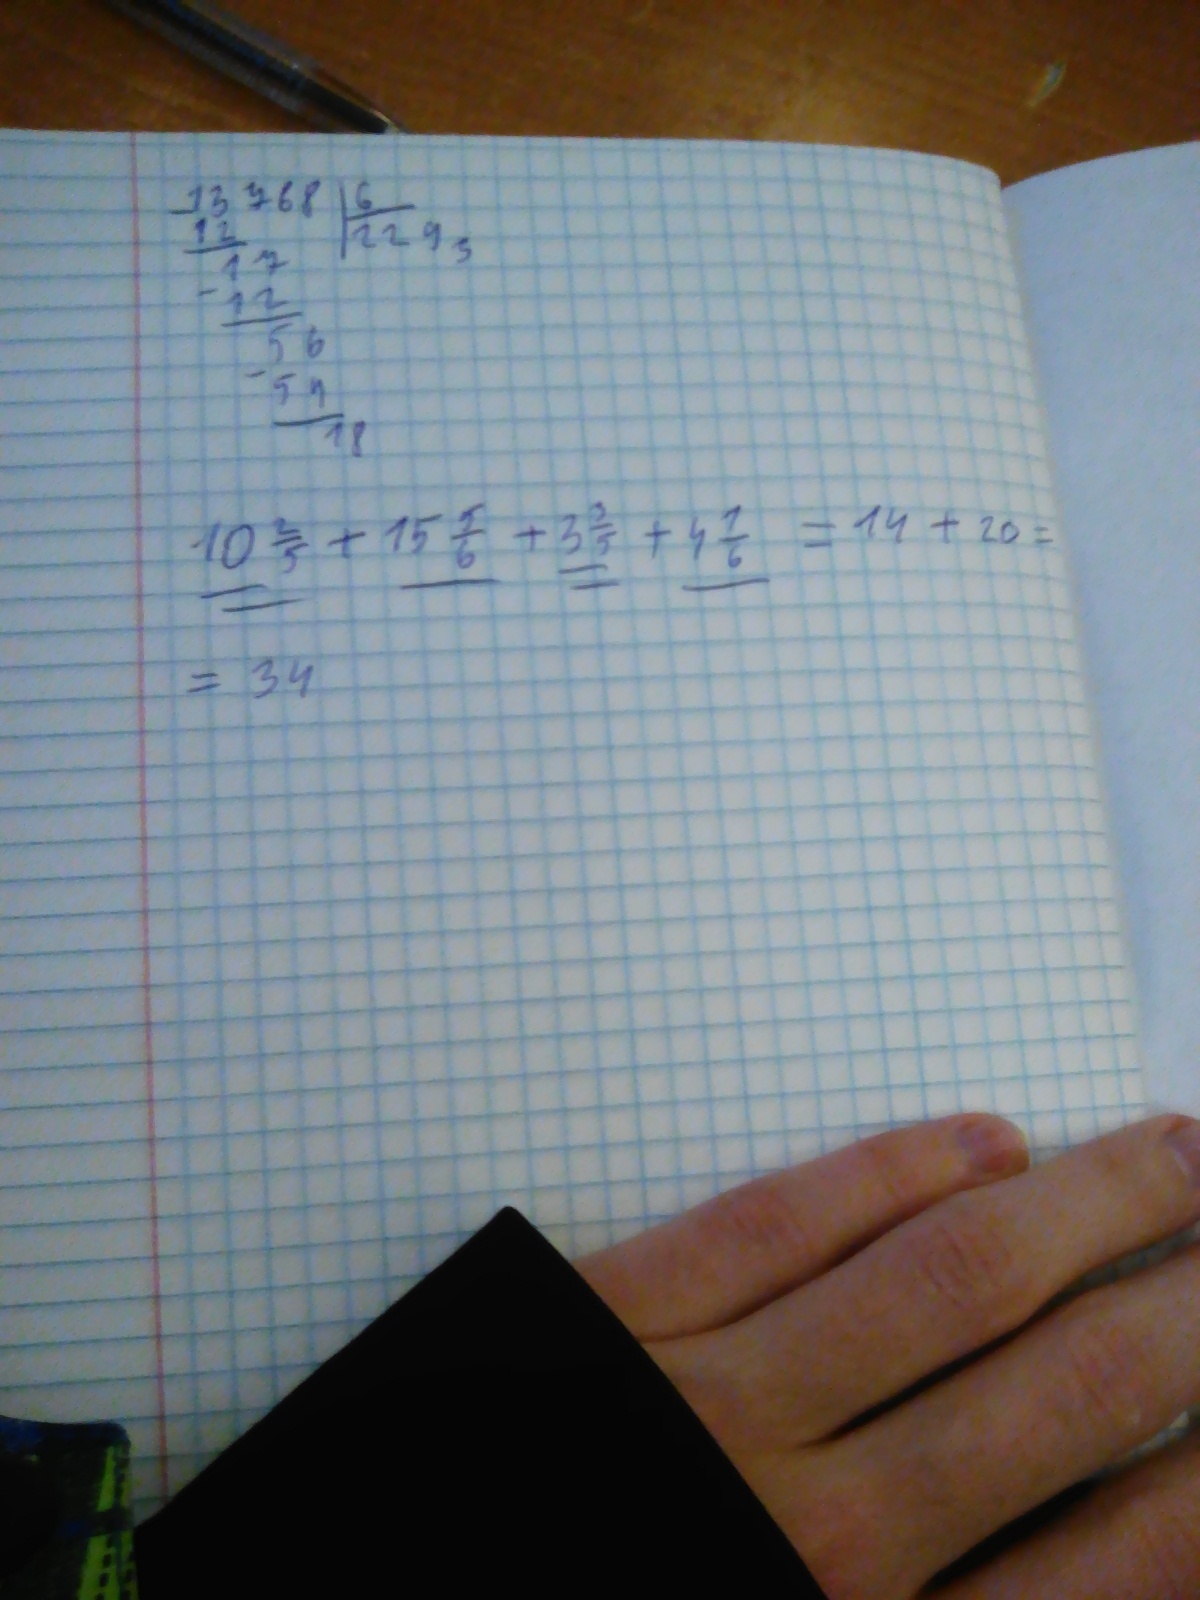 13768 | 6
12 | 2293
- 17
12
56
- 54
18
10 2/5 + 15 5/6 + 3 3/5 + 4 1/6 = 14 + 20 =
= 34